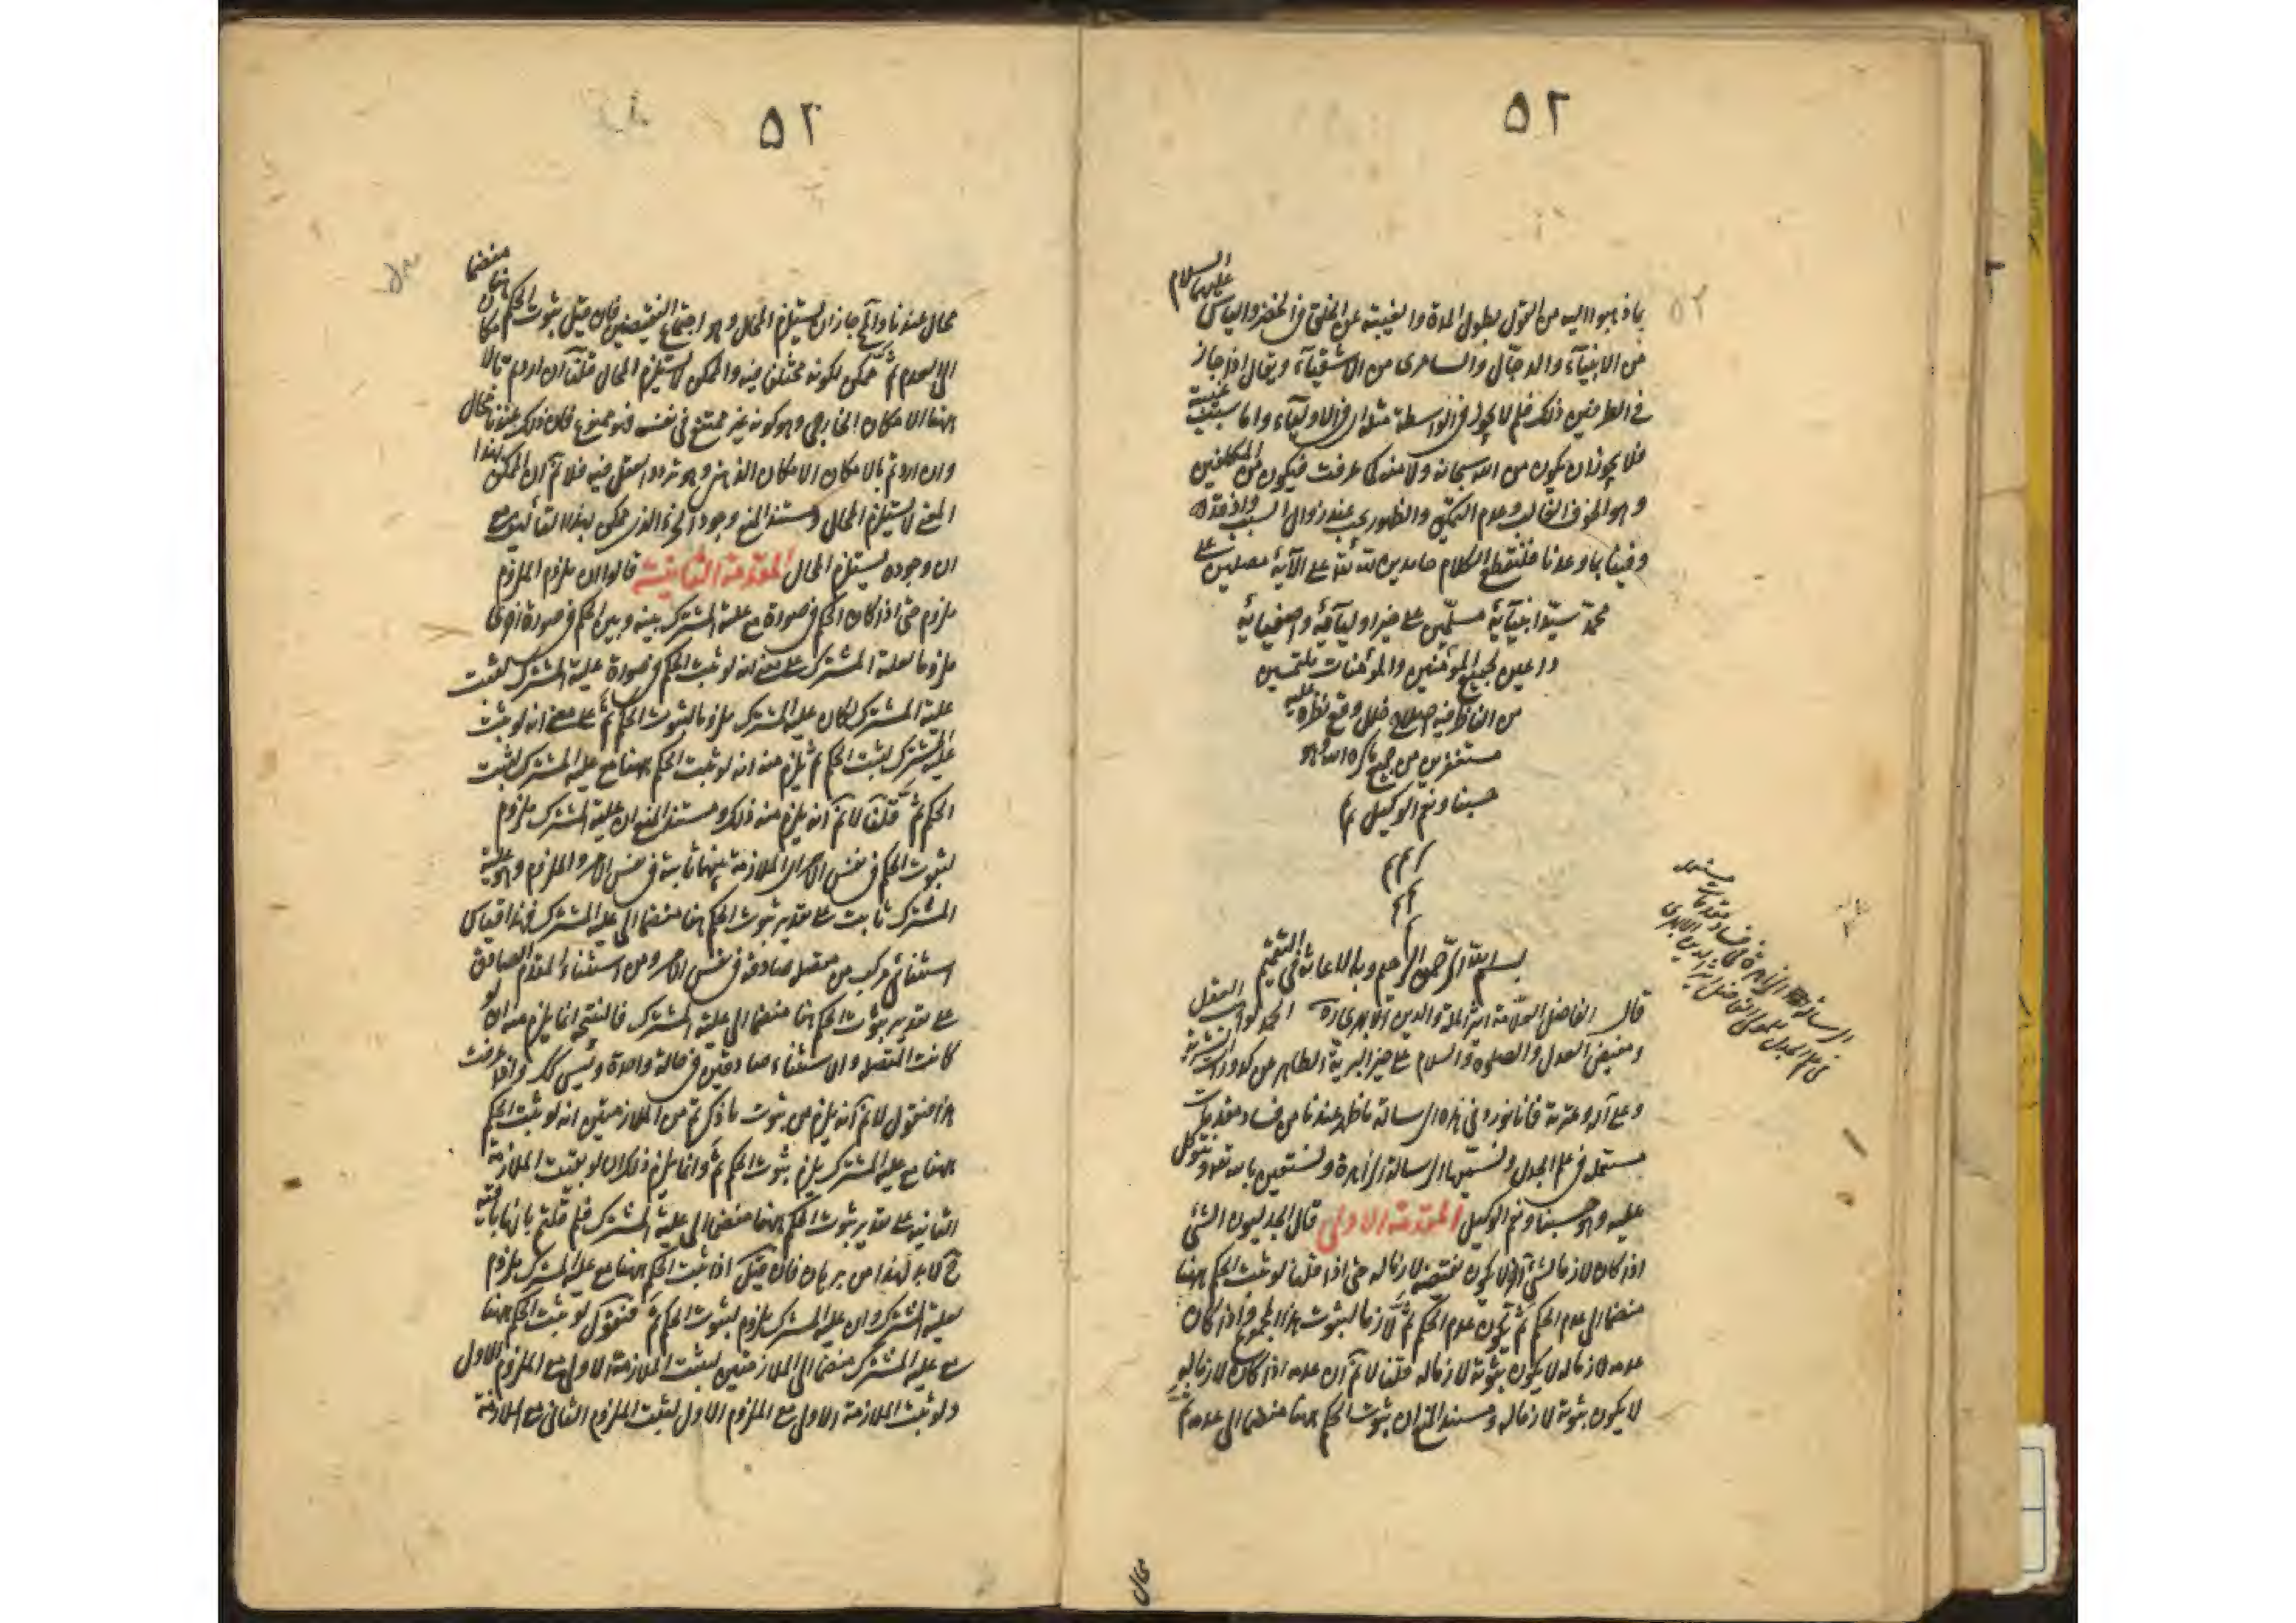 ٥٢
عليهما السلام
بما ذهبوا اليه من القول بطول المدة والغيبة عن الخلق فى الخضر والياس
من الانبيآء والدجّال والسامرى من الاشقيآء ويقال اذا جاز
فى الطرفين ذلك فلم لا يجوز فى الواسطة مثله اى فى الاوليآء واما سبب غيبته
فلا يجوز ان يكون من الله سبحانه ولا منه كما عرفت فيكون من المكلفين
وهو الخوف الغالب وعدم التمكين والظهور يجب عند زوال السبب واذ قد
وفينا بما وعدنا فلنقطع الكلام حامدين لله تعالى على الآئه مصلين على
محمد سيّد انبيآئه مسلّمين على خير اوليآئه واصفيائه
داعين لجميع المؤمنين والمؤمنات ملتمسين
من الناظر فيه اصلاح خلل وقع نظره عليه
مستغفرين من جميع ما كره الله وهو
حسبنا ونعم الوكيل تم
م م م
م م
م
بسم الله الرّحمن الرّحيم وبه الاعانة فى التتميم
قال الفاضل العلّامة اثير الملة والدين الابهرى ره الحمد لواهب العقل
ومفيض العدل والصلوة والسلام على خير البرية الطاهر من كدورات البشرية
وعلى آله وعترته فانا نورد فى هذه الرسالة ما ظهر عندنا من فساد مقدمات
مستعملة فى علم الجدل ونسمّيها الرسالة الزاهرة ونستعين بالله تعالى ونتوكل
عليه وهو حسبنا ونعم الوكيل المقدمة الاولى قال الجدليون الشئ
اذا كان لازما لشئ آخر لا يكون نقيضه لازما له حتى اذا قلنا لو ثبت الحكم ههنا
منضما الى عدم الحكم ثمّ يكون عدم الحكم ثمّ لازما لثبوت هذا المجموع واذا كان
عدمه لازما له لا يكون ثبوته لازما له قلنا لا نم ان عدمه اذا كان لازما له
لا يكون ثبوته لازما له ومستند المنع ان ثبوت الحكم ههنا منضما الى عدمه ثمّ
محال
الرسالة الزاهرة فى فساد مقدمات مستعملة
فى علم الجدل للمولى الفاضل اثير الدين الابهرى
٥٢
محال عندنا والمح جاز ان يستلزم المحال وهو اجتماع النقيضين فان قيل ثبوت الحكم ههنا منضما
الى العدم ثمّ ممكن لكونه مختلفا فيه والممكن لا يستلزم المحال قلنا ان اردتم بالامكان
ههنا الامكان الخارجى وهو كونه غير ممتنع فى نفسه فهو ممنوع فان ذلك عندنا محال
وان اردتم بالامكان الامكان الذهنى وهو تردد العقل فيه فلا نم ان الممكن بهذا
المعنى لا يستلزم المحال ومستند المنع وجود الجزء الذى
ان وجوده يستلزم المحال المقدمة الثانية قالوا ان ملزوم الملزوم
ملزوم حتى اذا كان الحكم فى صورة مع علية المشترك بينه وبين الحكم فى صورة اخرى
ملزوما لعلية المشترك على معنى انه لو ثبت الحكم فى صورة علية المشترك لثبت
علية المشترك لكان علية المشترك ملزوما لثبوت الحكم ثمّ على معنى انه لو ثبت
علية المشترك لثبت الحكم ثم يلزم منه انه لو ثبت الحكم ههنا مع علية المشترك لثبت
الحكم ثمّ قلنا لا نم انه يلزم منه ذلك ومستند المنع ان علية المشترك ملزوم
لثبوت الحكم فى نفس الامر اى الملازمة بينهما ثابتة فى نفس الامر والملزوم وهو علية
المشترك ثابت على تقدير ثبوت الحكم ههنا منضما الى علية المشترك فهذا قياس
استثنائى مركب من متصلة صادقة فى نفس الامر ومن استثناء المقدم الصادق
على تقدير ثبوت الحكم ههنا منضما الى علية المشترك فالنتيجة انما يلزم منه ان لو
كانت المتصلة والاستثناء صادقتين فى حالة واحدة وليس كك واذا عرفت
هذا فنقول لا نم انه يلزم من ثبوت ما ذكرتم من الملازمتين انه لو ثبت الحكم
ههنا مع علية المشترك يلزم ثبوت الحكم ثمّ وانما يلزم ذلك ان لو بقيت الملازمة
الثانية على تقدير ثبوت الحكم ههنا منضما الى علية المشترك فلم قلتم بانها باقية
ح لا بد لهذا من برهان فان قيل اذا ثبت الحكم ههنا مع علية المشترك ملزوم
لعلية المشترك وان علية المشترك ملزوم لثبوت الحكم ثمّ فنقول لو ثبت الحكم ههنا
مع علية المشترك منضما الى الملازمتين لثبت الملازمة الاولى مع الملزوم الاول
ولو ثبت الملازمة الاولى مع الملزوم الاول لثبت الملزوم الثانى مع الملازمة